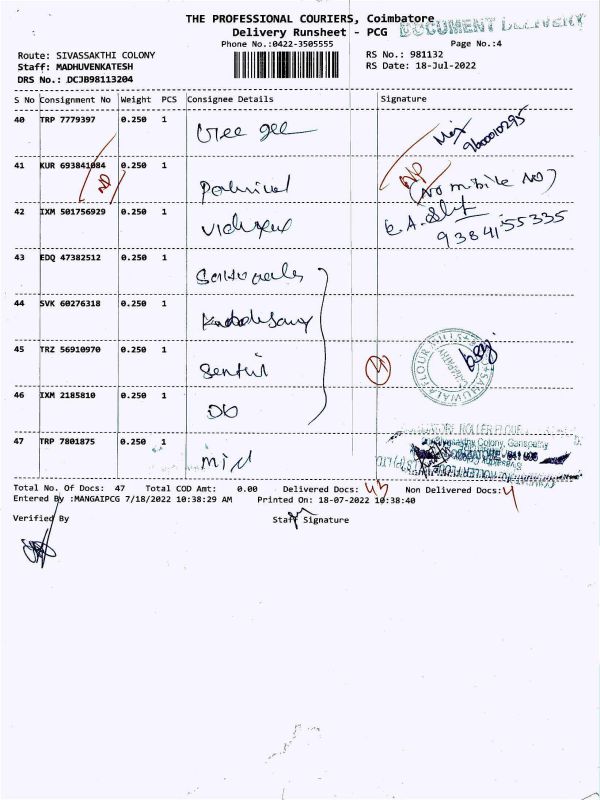 THE PROFESSIONAL COURIERS, Coimbatore
DOCUMENT DELIVERY
Delivery Runsheet - PCG
Phone No.:0422-3505555
Page No.:4
Route: SIVASSAKTHI COLONY
RS No.: 981132
Staff: MADHUVENKATESH
RS Date: 18-Jul-2022
DRS No.: DCJB98113204
S No Consignment No Weight PCS Consignee Details Signature
40 TRP 7779397 0.250 1 Gee gee
9600010295
41 KUR 693841084 0.250 1
NP
NP
(No mobile No)
42 IXM 501756929 0.250 1
9384155335
43 EDQ 47382512 0.250 1
44 SVK 60276318 0.250 1
45 TRZ 56910970 0.250 1 Senthil
4
FLOUR MILLS
46 IXM 2185810 0.250 1 DO
47 TRP 7801875 0.250 1
Total No. Of Docs: 47 Total COD Amt: 0.00 Delivered Docs: 43 Non Delivered Docs: 4
Entered By :MANGAIPCG 7/18/2022 10:38:29 AM Printed On: 18-07-2022 10:38:40
Verified By Staff Signature